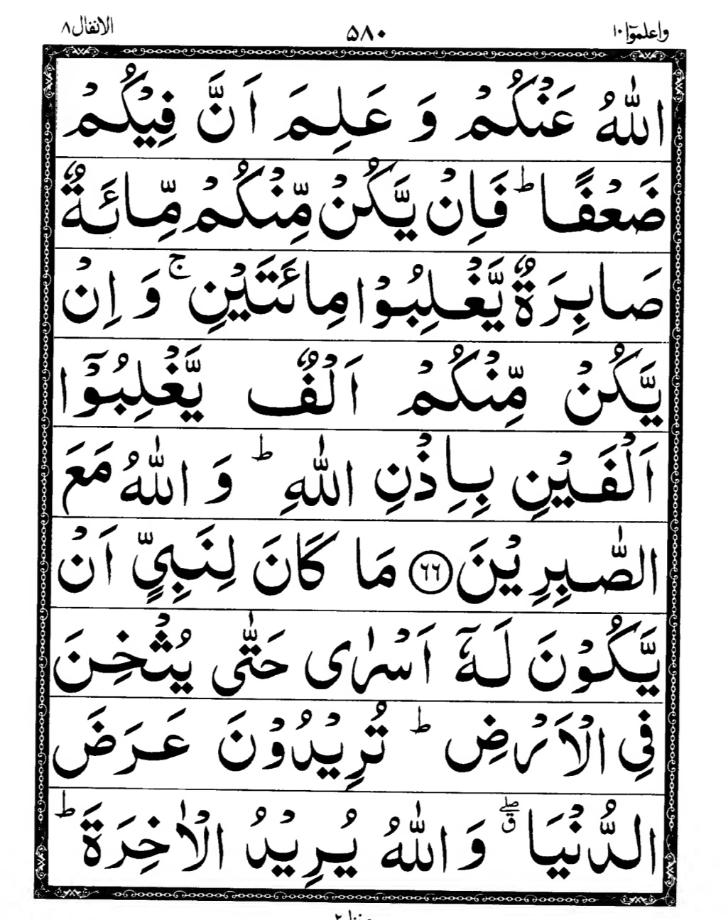 واعلموٓا ١٠ ۵۸۰ الانفال ٨
اللّٰهُ عَنۡكُمۡ وَ عَلِمَ اَنَّ فِيۡكُمۡ
ضَعۡفًا ؕ فَاِنۡ يَّكُنۡ مِّنۡكُمۡ مِّائَةٌ
صَابِرَةٌ يَّغۡلِبُوۡا مِائَتَيۡنِ ۚ وَ اِنۡ
يَّكُنۡ مِّنۡكُمۡ اَلۡفٌ يَّغۡلِبُوۡۤا
اَلۡفَيۡنِ بِاِذۡنِ اللّٰهِ ؕ وَ اللّٰهُ مَعَ
الصّٰبِرِيۡنَ ﴿٦٦﴾ مَا كَانَ لِنَبِيٍّ اَنۡ
يَّكُوۡنَ لَهٗۤ اَسۡرٰى حَتّٰى يُثۡخِنَ
فِى الۡاَرۡضِ ؕ تُرِيۡدُوۡنَ عَرَضَ
الدُّنۡيَا ۖق وَ اللّٰهُ يُرِيۡدُ الۡاٰخِرَةَ ؕ